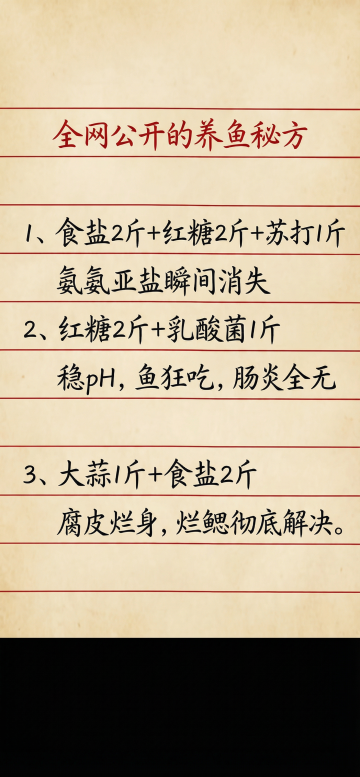 全网公开的养鱼秘方
1、食盐2斤+红糖2斤+苏打1斤
氨氨亚盐瞬间消失
2、红糖2斤+乳酸菌1斤
稳pH,鱼狂吃,肠炎全无
3、大蒜1斤+食盐2斤
腐皮烂身,烂鳃彻底解决。